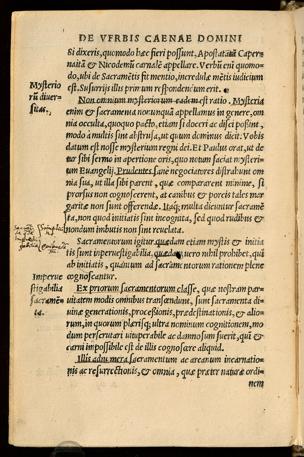 DE VERBIS CAENAE DOMINI
Si dixeris, quomodo hæc fieri possunt, Apostatam Caper-
naitã & Nicodemũ carnalẽ appellare. Verbũ enĩ quomo-
do, ubi de Sacramẽtis fit mentio, incredulæ mẽtis iudicium
est. Susurrijs illis primum respondendum erit.
Mysterio
rũ diuer-
sitas.
Non omnium mysteriorum eadem est ratio. Mysteria
enim & sacramenta nonnunquã appellamus in genere, om
nia occulta, quoquo pacto, etiam si doceri ac disci possint,
modò à multis sint abstrusa, ut quum dominus dicit. Vobis
datum est nosse mysterium regni dei. Et Paulus orat, ut de
tur sibi sermo in apertione oris, quo notum faciat mysteri-
um Euangelij. Prudentes sanè negociatores distrahunt om
nia sua, ut illa sibi parent, quæ compararent minime, si
prorsus non cognoscerent, at canibus & porcis tales mar
garitæ non sunt offerendæ. Itaq; multa dicuntur sacramẽ
ta, non quod initiatis sint incognita, sed quod rudibus &
nondum imbutis non sunt reuelata.
Sacramentorum igitur quædam etiam mystis & initia
tis sunt inperuestigabilia, quædam uero nihil prohibet, quin
ab initiatis, quantum ad sacramentorum rationem plene
cognoscantur.
Imperue
stigabilia
sacramẽ-
ta.
Ex priorum sacramentorum classe, quæ nostram par-
uitatem modis omnibus transcendunt, sunt sacramenta di-
uinæ generationis, processionis, prædestinationis, & alio-
rum, in quorum plærisq; ultra nominum cognitionem, mo-
dum perscrutari uituperabile ac damnosum fuerit, qui &
carni impossibile est de illis cognoscere aliquid.
Illis adnumera sacramentum ac arcanum incarnatio-
nis ac resurrectionis, & omnia, quæ præter naturæ ordi-
nem